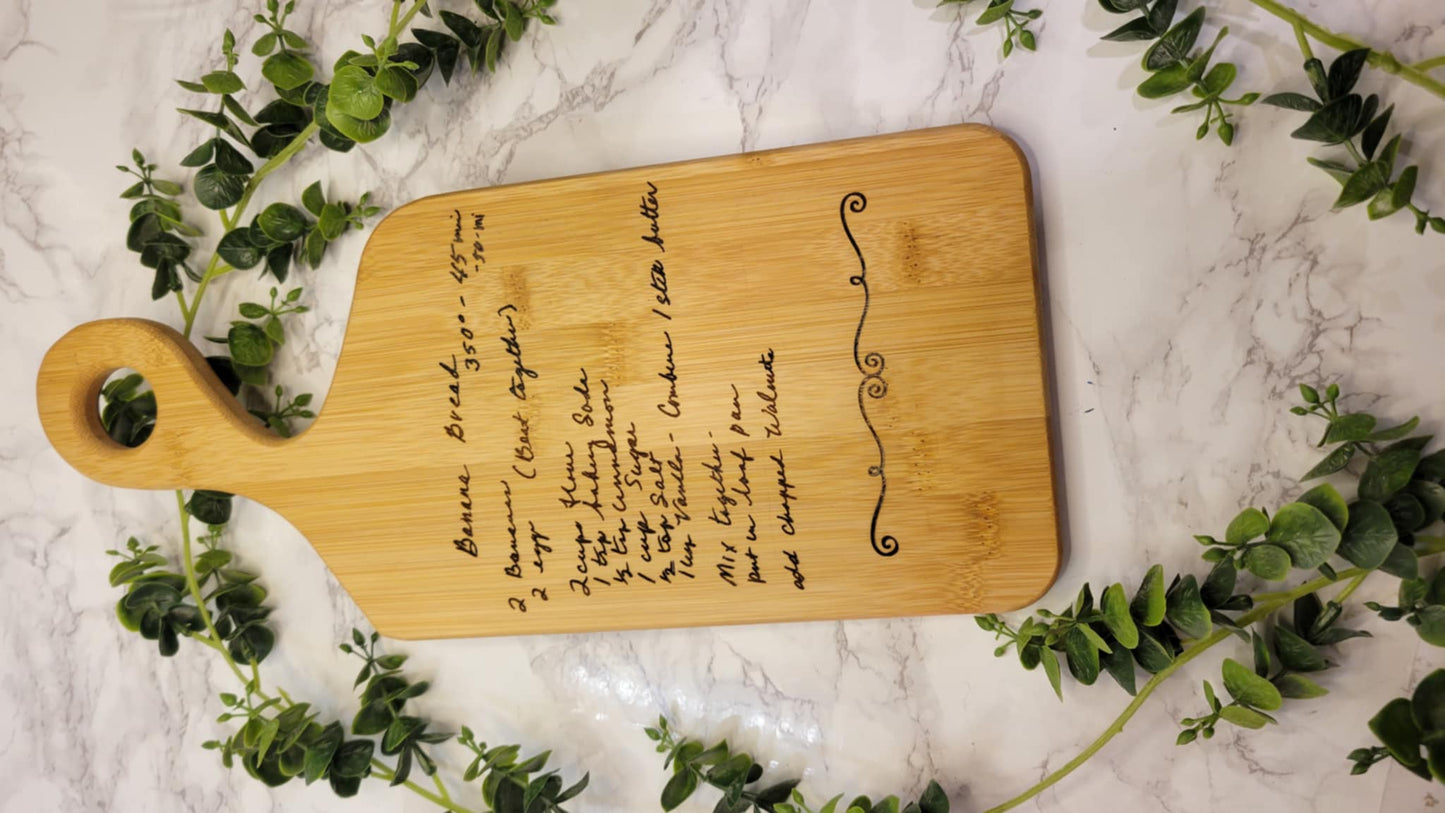 Banana Bread
350° - 45 min
- 50 - mi
2 Bananas (Beat together)
2 egg
2 cups flour
1 tsp baking Soda
½ tsp cinndmon
1 cup Sugar
½ tsp Salt
1 tsp Vanilla - Combine 1 stick butter
Mix together -
put in loaf pan
add chopped Walnuts